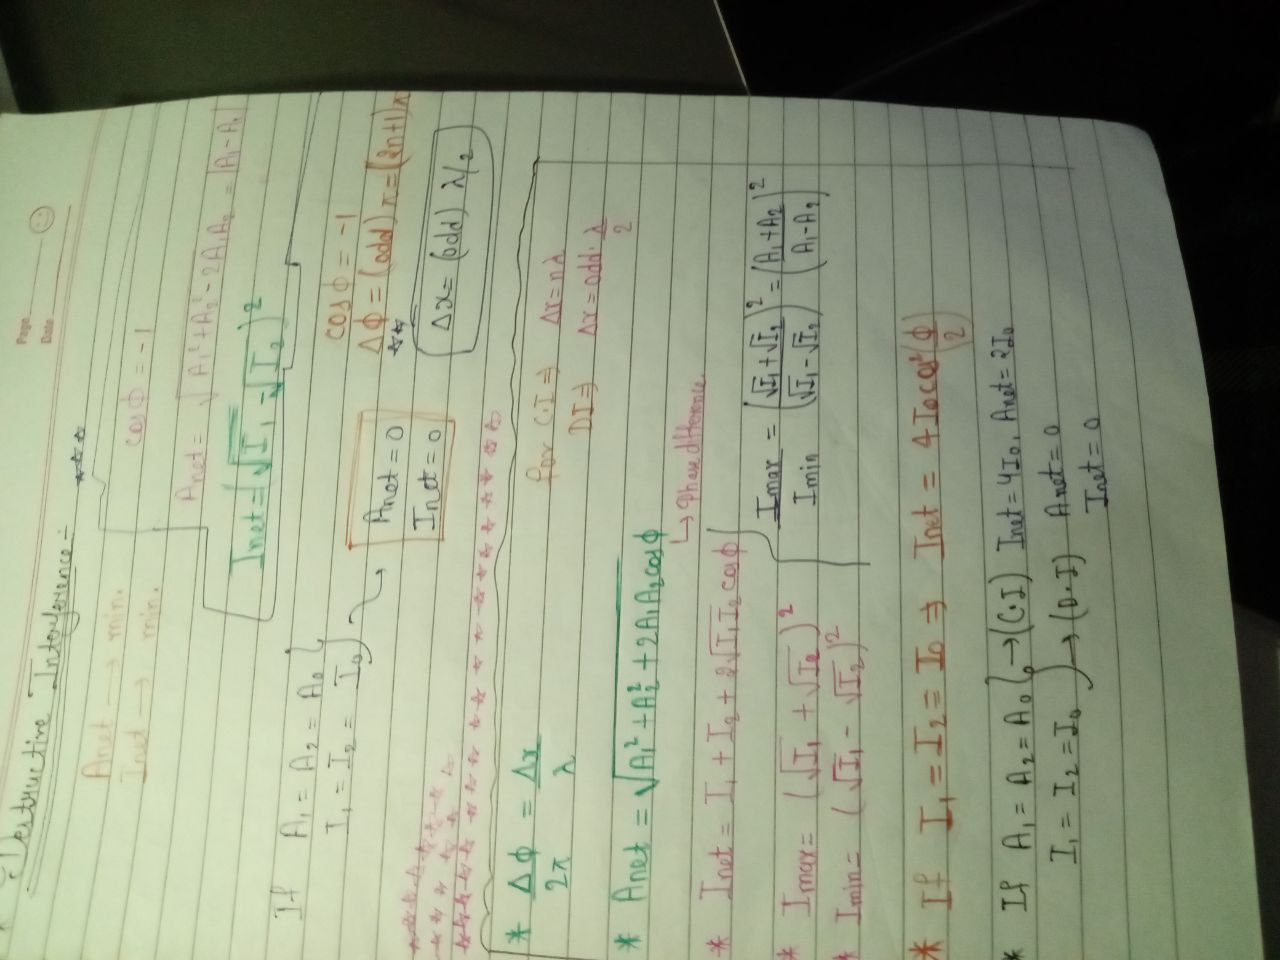 Page
Date
Destructive Interference:-
Anet → min.
Inet → min.
cos ϕ = -1
Anet = √(A₁² + A₂² - 2A₁A₂) = |A₁ - A₂|
Inet = (√I₁ - √I₂)²
If A₁ = A₂ = A₀
I₁ = I₂ = I₀
Anet = 0
Inet = 0
cos ϕ = -1
Δϕ = (odd) π = (2n+1)π
Δx = (odd) λ/2
* Δϕ/2π = Δx/λ
for C.I ⇒ Δx = nλ
D.I ⇒ Δx = odd · λ/2
* Anet = √(A₁² + A₂² + 2A₁A₂cos ϕ)
↳ phase difference.
* Inet = I₁ + I₂ + 2√I₁I₂ cos ϕ
* Imax = (√I₁ + √I₂)²
* Imin = (√I₁ - √I₂)²
Imax/Imin = (√I₁ + √I₂ / √I₁ - √I₂)² = (A₁ + A₂ / A₁ - A₂)²
* If I₁ = I₂ = I₀ ⇒ Inet = 4I₀ cos² (ϕ/2)
* If A₁ = A₂ = A₀ → (C.I) Inet = 4I₀, Anet = 2I₀
I₁ = I₂ = I₀ → (D.I) Anet = 0
Inet = 0